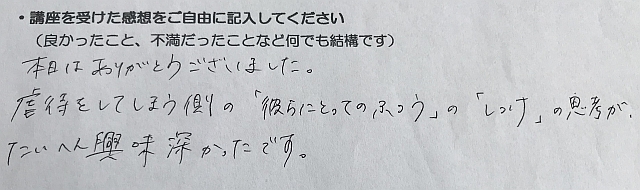 ・講座を受けた感想をご自由に記入してください
（良かったこと、不満だったことなど何でも結構です）
本日はありがとうございました。
虐待をしてしまう側の「彼らにとってのふつう」の「しつけ」の思考が、
たいへん興味深かったです。